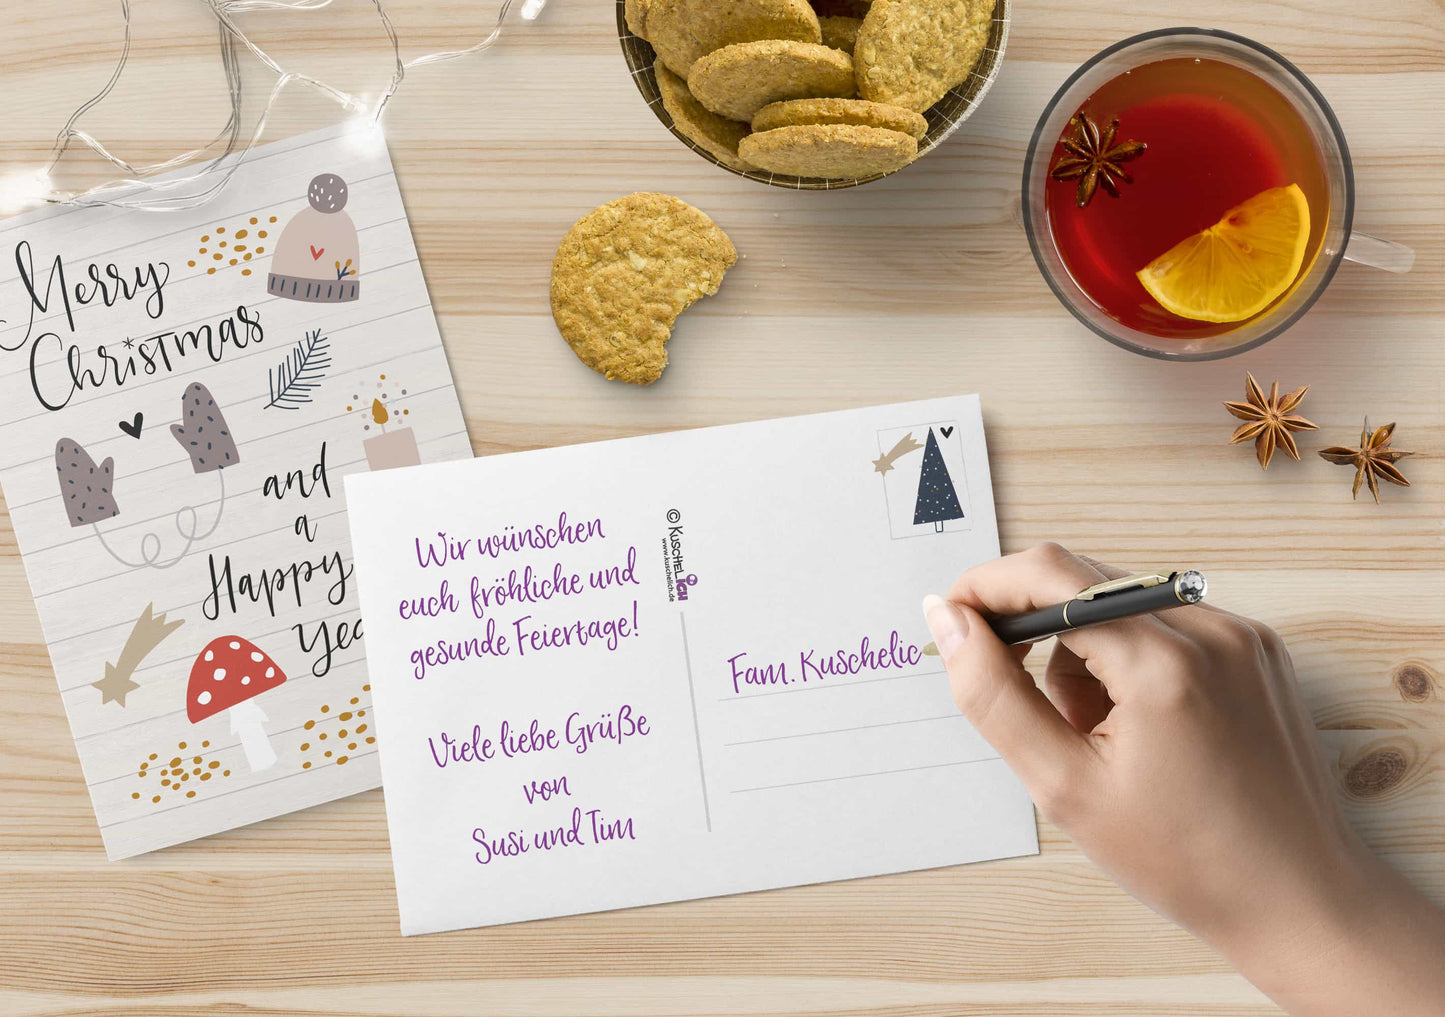 Merry
Christmas
and
a
Happy
Yea
Wir wünschen
euch fröhliche und
gesunde Feiertage!
Viele liebe Grüße
von
Susi und Tim
© KUSCHELICH
www.kuschelich.de
Fam. Kuschelic